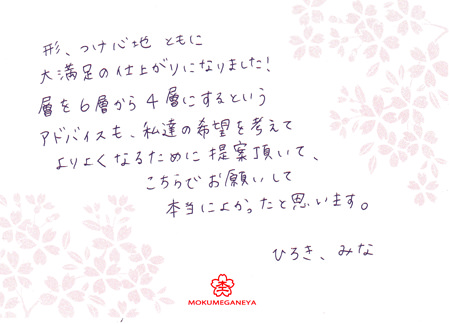 形、つけ心地 ともに
大満足の仕上がりになりました!
層を6層から4層にするという
アドバイスも、私達の希望を考えて
よりよくなるために提案頂いて、
こちらでお願いして
本当によかったと思います。
ひろき、みな
MOKUMEGANEYA